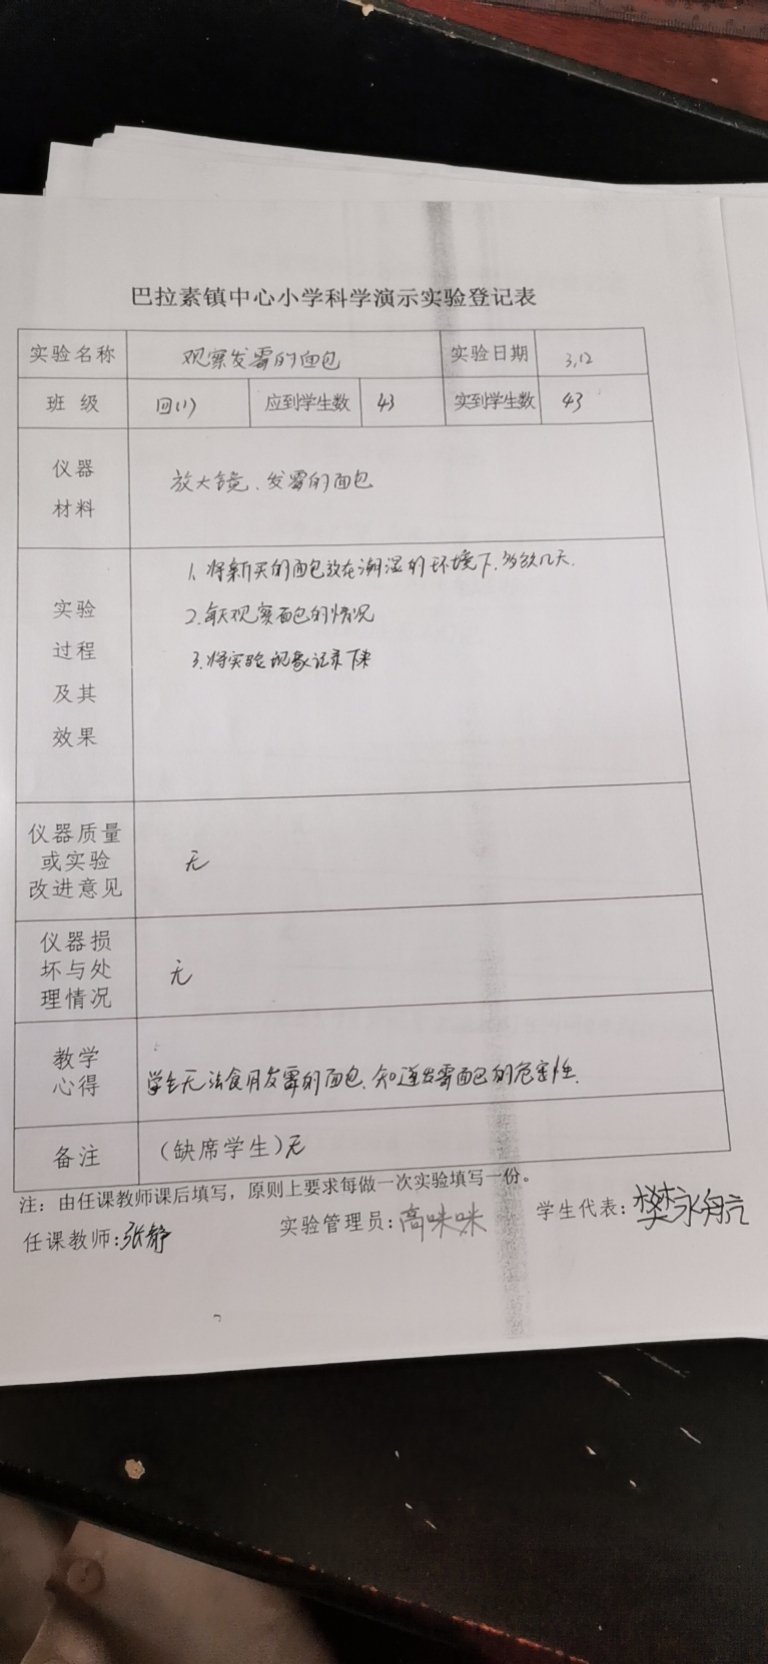 巴拉素镇中心小学科学演示实验登记表
实验名称 观察发霉的面包 实验日期 3.12
班 级 四(1) 应到学生数 43 实到学生数 43
仪器
材料
放大镜、发霉的面包
实验
过程
及其
效果
1、将新买的面包放在潮湿的环境下,多放几天.
2.每天观察面包的情况
3.将实验现象记录下来
仪器质量
或实验
改进意见
无
仪器损
坏与处
理情况
无
教学
心得
学生无法食用发霉的面包,知道发霉面包的危害性.
备注 (缺席学生)无
注:由任课教师课后填写,原则上要求每做一次实验填写一份。
任课教师:张静 实验管理员:高咪咪 学生代表:樊永航